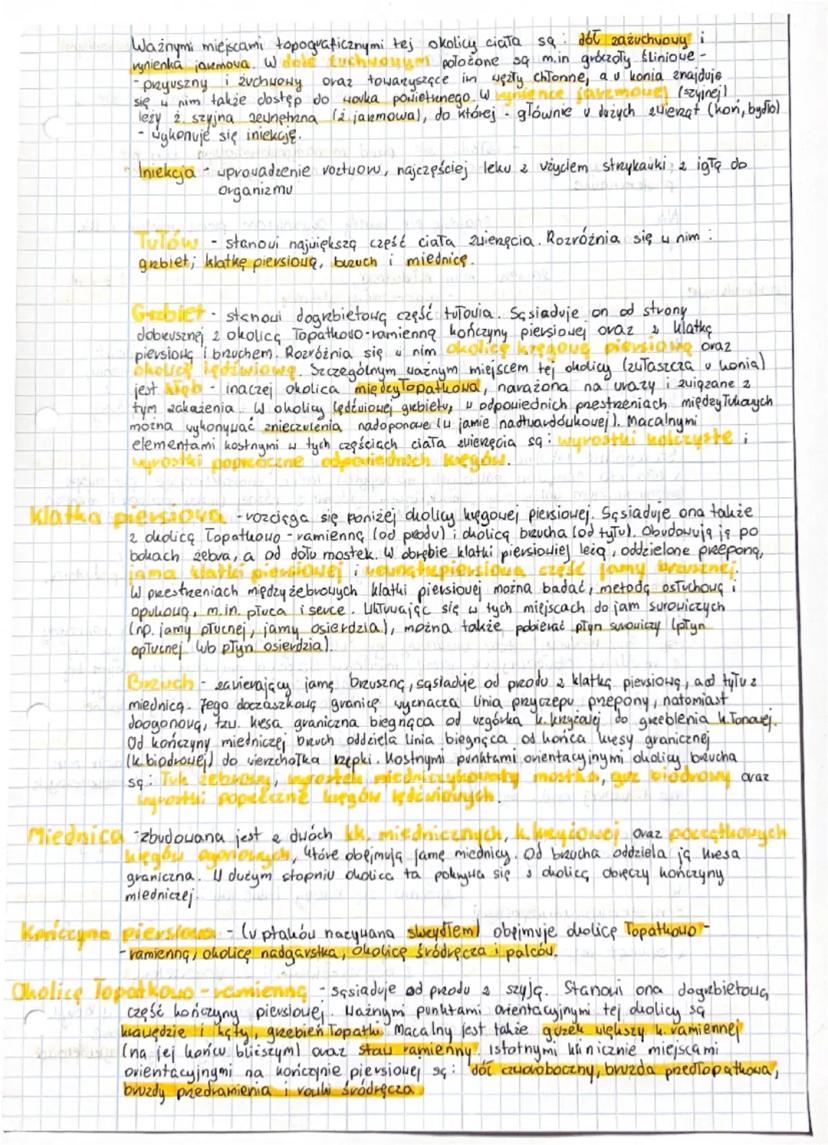 Ważnymi miejscami topograficznymi tej okolicy ciała są: dół zażuchwowy i
rynienka jarzmowa. W dole żuchwowym położone są m.in gruczoły ślinowe -
- przyuszny i żuchwowy oraz towarzyszące im węzły chłonne, a u konia znajduje
się w nim także dostęp do worka powietrznego. W rynience jarzmowej (szyjnej)
leży ż. szyjna zewnętrzna (ż. jarzmowa), do której - głównie u dużych zwierząt (koń, bydło)
- wykonuje się iniekcję.
Iniekcja - wprowadzenie roztworu, najczęściej leku z użyciem strzykawki z igłą do
organizmu
Tułów - stanowi największą część ciała zwierzęcia. Rozróżnia się w nim:
grzbiet; klatkę piersiową, brzuch i miednicę.
Grzbiet - stanowi dogrzbietową część tułowia. Sąsiaduje on od strony
dobrzusznej z okolicą łopatkowo-ramienną kończyny piersiowej oraz z klatką
piersiową i brzuchem. Rozróżnia się w nim okolicę kręgową piersiową oraz
okolicę lędźwiową. Szczególnym ważnym miejscem tej okolicy (zwłaszcza u konia)
jest kłąb - inaczej okolica międzyłopatkowa, narażona na urazy i związane z
tym zakażenia. W okolicy lędźwiowej grzbietu, w odpowiednich przestrzeniach międzyłukowych
można wykonywać znieczulenia nadoponowe (w jamie nadtwardówkowej). Macalnymi
elementami kostnymi w tych częściach ciała zwierzęcia są: wyrostki kolczyste i
wyrostki poprzeczne odpowiednich kręgów.
Klatka piersiowa - rozciąga się poniżej okolicy kręgowej piersiowej. Sąsiaduje ona także
z okolicą łopatkowo - ramienną (od przodu) i okolicą brzucha (od tyłu). Obudowują ją po
bokach żebra, a od dołu mostek. W obrębie klatki piersiowej leżą, oddzielone przeponą,
jama klatki piersiowej i wewnątrzpiersiowa część jamy brzusznej.
W przestrzeniach międzyżebrowych klatki piersiowej można badać, metodą osłuchową i
opukową, m.in. płuca i serce. Wkłuwając się w tych miejscach do jam surowiczych
(np. jamy płucnej, jamy osierdzia), można także pobierać płyn surowiczy (płyn
opłucnej lub płyn osierdzia).
Brzuch - zawierający jamę brzuszną, sąsiaduje od przodu z klatką piersiową, a od tyłu z
miednicą. Jego doczaszkową granicę wyznacza linia przyczepu przepony, natomiast
doogonową, tzw. kresa graniczna biegnąca od wzgórka k. krzyżowej do grzebienia k. łonowej.
Od kończyny miednicznej brzuch oddziela linia biegnąca od końca kresy granicznej
(k. biodrowej) do wierzchołka rzepki. Kostnymi punktami orientacyjnymi okolicy brzucha
są: łuk żebrowy, wyrostek mieczykowaty mostka, guz biodrowy oraz
wyrostki poprzeczne kręgów lędźwiowych.
Miednica - zbudowana jest z dwóch kk. miednicznych, k. krzyżowej oraz początkowych
kręgów ogonowych, które obejmują jamę miednicy. Od brzucha oddziela ją kresa
graniczna. W dużym stopniu okolica ta pokrywa się z okolicą obręczy kończyny
miednicznej.
Kończyna piersiowa - (u ptaków nazywana skrzydłem) obejmuje okolicę łopatkowo -
- ramienną, okolicę nadgarstka, okolicę śródręcza i palców.
Okolicę łopatkowo - ramienną - sąsiaduje od przodu z szyją. Stanowi ona dogrzbietową
część kończyny piersiowej. Ważnymi punktami orientacyjnymi tej okolicy są
krawędzie i kąty, grzebień łopatki. Macalny jest także guzek większy k. ramiennej
(na jej końcu bliższym) oraz staw ramienny. Istotnymi klinicznie miejscami
orientacyjnymi na kończynie piersiowej są: dół czworoboczny, bruzda przedłopatkowa,
bruzdy przedramienia i rowki śródręcza